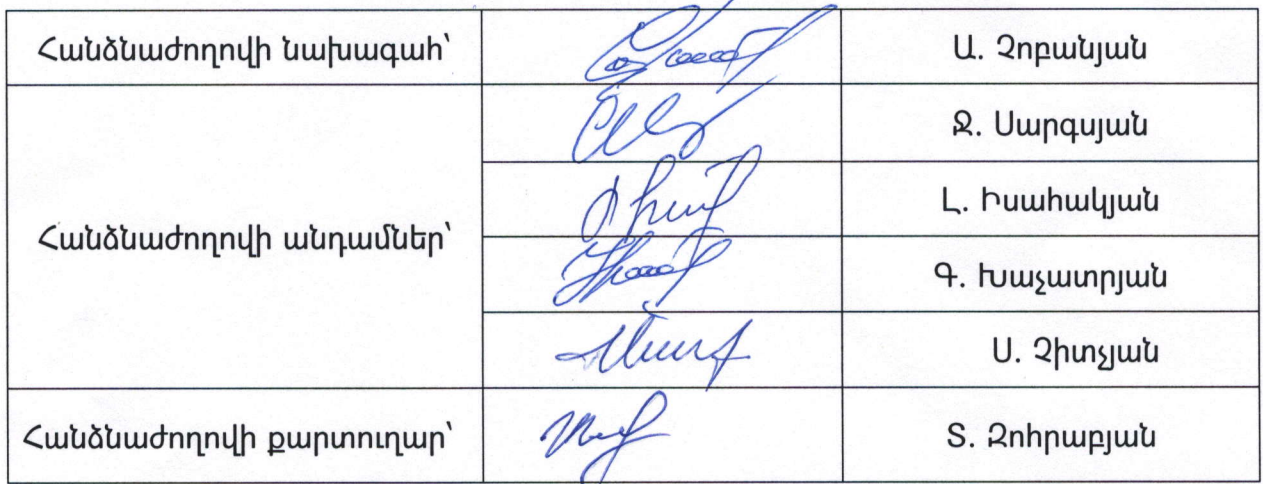 Հանձնաժողովի նախագահ՝
Ա. Չոբանյան
Հանձնաժողովի անդամներ՝
Ջ. Սարգսյան
Լ. Իսահակյան
Գ. Խաչատրյան
Ս. Չիտչյան
Հանձնաժողովի քարտուղար՝
Տ. Զոհրաբյան